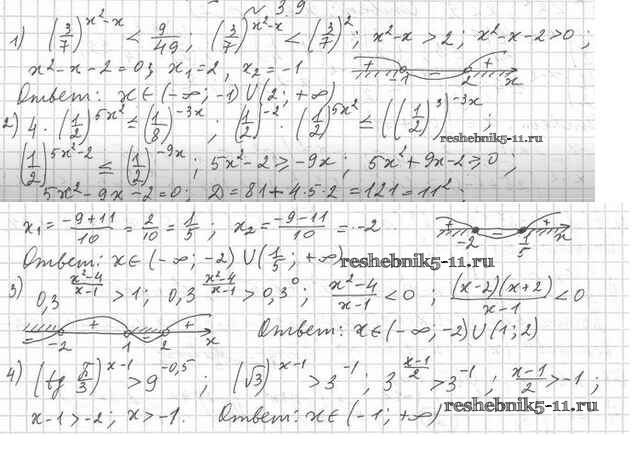 № 39
1) (3/7)^(x²-x) < 9/49 ; (3/7)^(x²-x) < (3/7)² ; x²-x > 2 ; x²-x-2>0 ;
x²-x-2=0 ; x₁=2, x₂=-1 + -1 - 2 + x
Ответ: x∈(-∞; -1)∪(2; +∞)
2) 4·(1/2)^(5x²) ≤ (1/8)^(-3x) ; (1/2)^(-2)·(1/2)^(5x²) ≤ ((1/2)³)^(-3x) ;
reshebnik5-11.ru
(1/2)^(5x²-2) ≤ (1/2)^(-9x) ; 5x²-2 ≥ -9x ; 5x²+9x-2≥0 ;
5x²-9x-2=0 ; D=81+4·5·2=121=11² ;
x₁= (-9+11)/10 = 2/10 = 1/5 ; x₂= (-9-11)/10 = -2 + -2 - 1/5 + x
Ответ: x∈(-∞; -2)∪(1/5; +∞)
reshebnik5-11.ru
3) 0,3^((x²-4)/(x-1)) > 1 ; 0,3^((x²-4)/(x-1)) > 0,3⁰ ; (x²-4)/(x-1) < 0 ; ((x-2)(x+2))/(x-1) < 0
- -2 + 1 - 2 + x Ответ: x∈(-∞; -2)∪(1; 2)
4) (tg π/3)^(x-1) > 9^(-0,5) ; (√3)^(x-1) > 3^(-1) ; 3^((x-1)/2) > 3^(-1) ; (x-1)/2 > -1 ;
reshebnik5-11.ru
x-1>-2 ; x>-1. Ответ: x∈(-1; +∞)
reshebnik5-11.ru